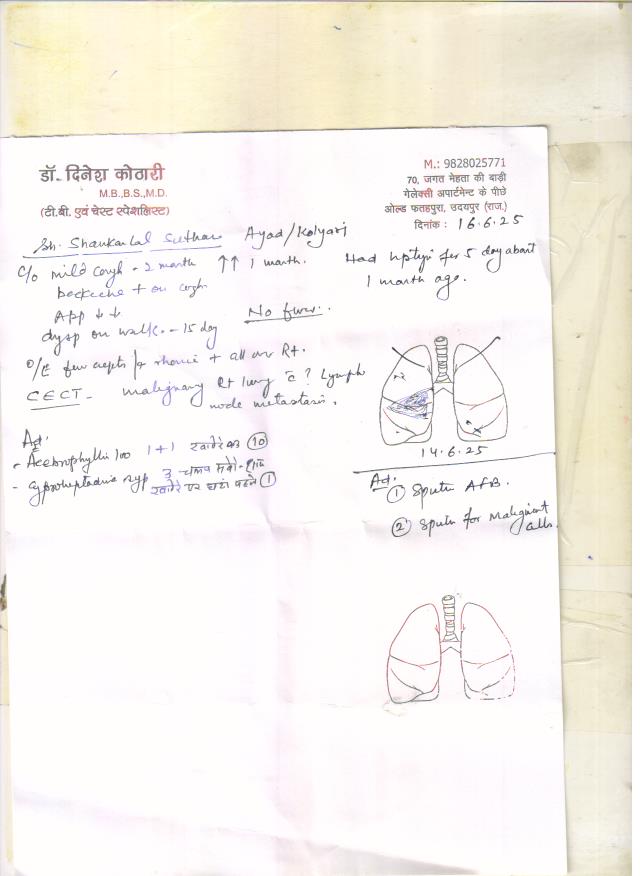 डॉ. दिनेश कोठारी
M.B.,B.S.,M.D.
(टी.बी. एवं चेस्ट स्पेशलिस्ट)
M.: 9828025771
70, जगत मेहता की बाड़ी
गेलेक्सी अपार्टमेन्ट के पीछे
ओल्ड फतहपुरा, उदयपुर (राज.)
दिनांक : 16.6.25
Sh. Shankarlal Suthar Ayad/Kolyari
C/o mild cough - 2 month ↑↑ 1 month.
Had for 5 day about
1 month ago.
backache + on cough
App ↓ ↓
No fever.
dysp on walk. - 15 day
O/E few crepts rhonchi + all over Rt.
CECT - malignancy Rt lung c̄ ? Lymph
node metastasis.
14.6.25
Ad.
- Acebrophyllin 100 1+1 10
- Cyproheptadine syp 3 चम्मच
1
Ad.
① Sputum AFB.
② Sputum for Malignant
cells.